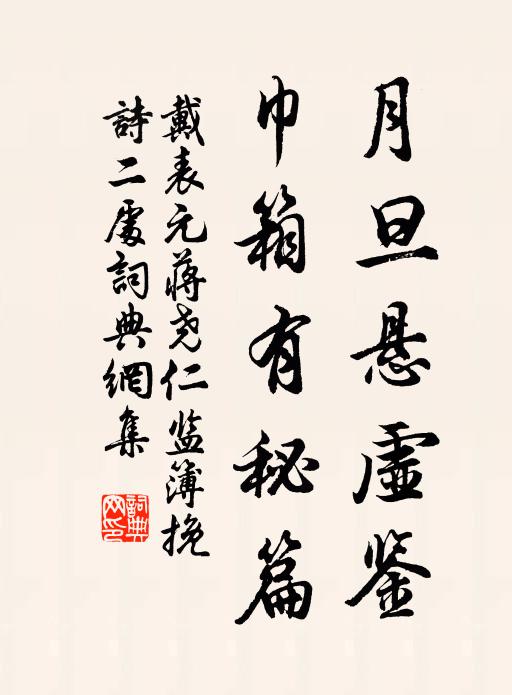 月旦悬虚鉴
巾箱有秘篇
戴表元蒋尧仁监簿挽
詩二處詞典網集
詞典网印